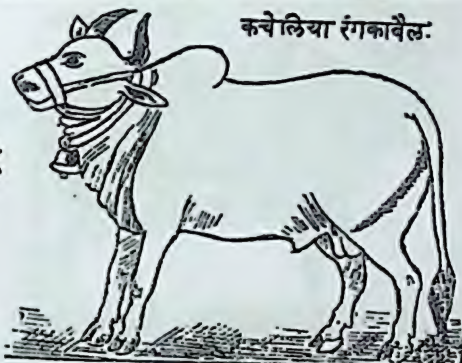 कचेलिया रंगकाबैल-